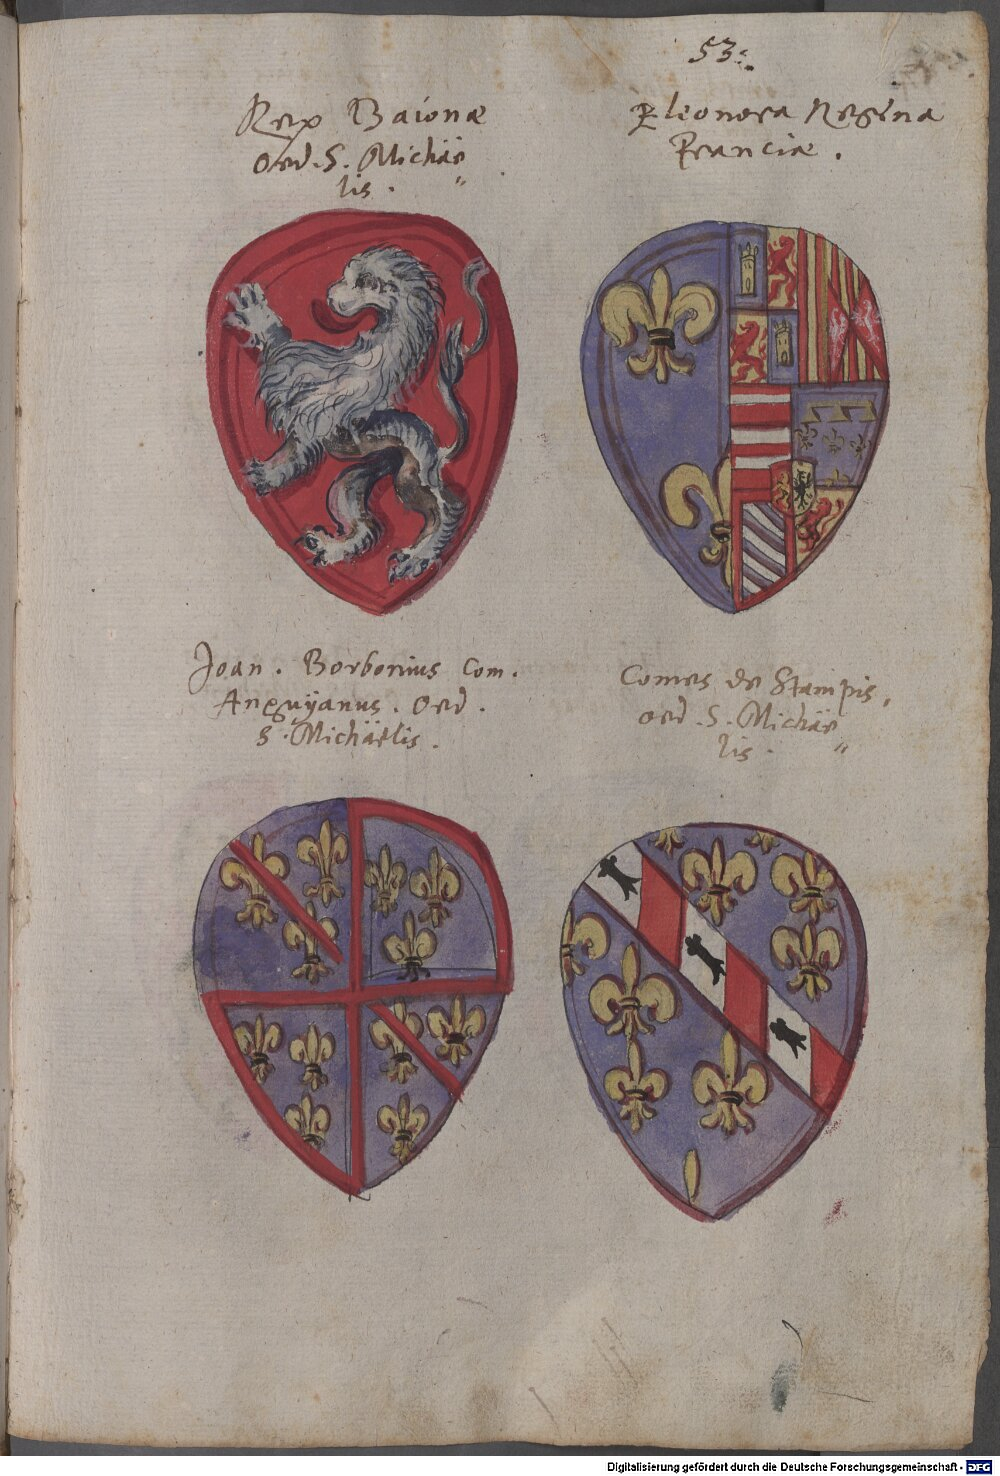 53.
Rex Baionæ
Ord. S. Michäe
lis. "
Eleonora Regina
Franciæ.
Joan. Borbonius Com.
Anguÿanus. Ord.
S. Michäelis.
Comes de Stampis,
Ord. S. Michäe
lis. "
Digitalisierung gefördert durch die Deutsche Forschungsgemeinschaft - DFG